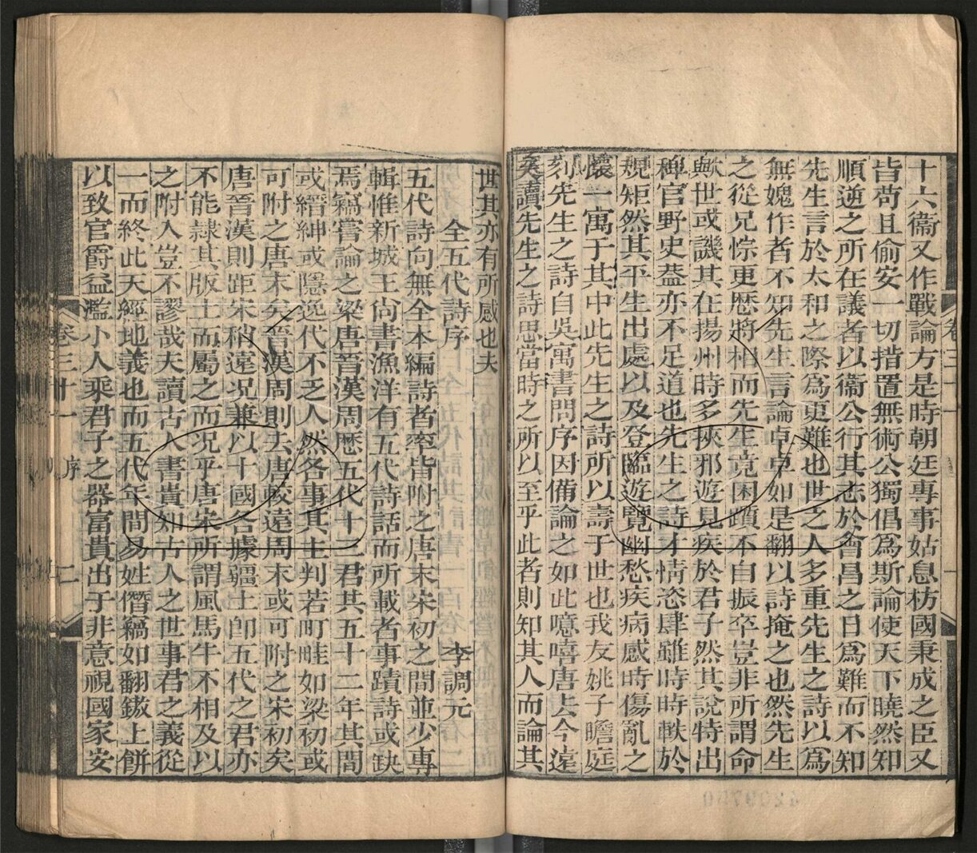 十六衞又作戰論方是時朝廷專事姑息枋國秉成之臣又
皆苟且偷安一切措置無術公獨倡爲斯論使天下曉然知
順逆之所在議者以衞公行其志於會昌之日爲難而不知
先生言於太和之際爲更難也世之人多重先生之詩以爲
無媿作者不知先生言論卓卓如是翻以詩掩之也然先生
之從兄悰更歷將相而先生竟困躓不自振卒豈非所謂命
歟世或譏其在揚州時多挾邪遊見疾於君子然其說特出
稗官野史葢亦不足道也先生之詩才情恣肆雖時時軼於
規矩然其平生出處以及登臨遊覽幽愁疾病感時傷亂之
懷一寓于其中此先生之詩所以壽于世也我友姚子瞻庭
刻先生之詩自吳寓書問序因偹論之如此噫嘻唐去今遠
矣讀先生之詩思當時之所以至乎此者則知其人而論其
世其亦有所感也夫
全五代詩序
李調元
五代詩向無全本編詩者率皆附之唐末宋初之間並少專
輯惟新城王尙書漁洋有五代詩話而所載者事蹟詩或缺
焉竊嘗論之梁唐晉漢周歷五代十三君其五十二年其間
或縉紳或隱逸代不乏人然各事其主判若町畦如梁初或
可附之唐末矣晉漢周則去唐較遠周末或可附之宋初矣
唐晉漢則距宋稍遠况兼以十國各據疆土卽五代之君亦
不能隸其版土而屬之而况乎唐宋所謂風馬牛不相及以
之附入豈不謬哉夫讀古人書貴知古人之世事君之義從
一而終此天經地義也而五代年間易姓僭竊如翻鏊上餅
以致官爵益濫小人乘君子之器富貴出于非意視國家安
卷三十一
序
二